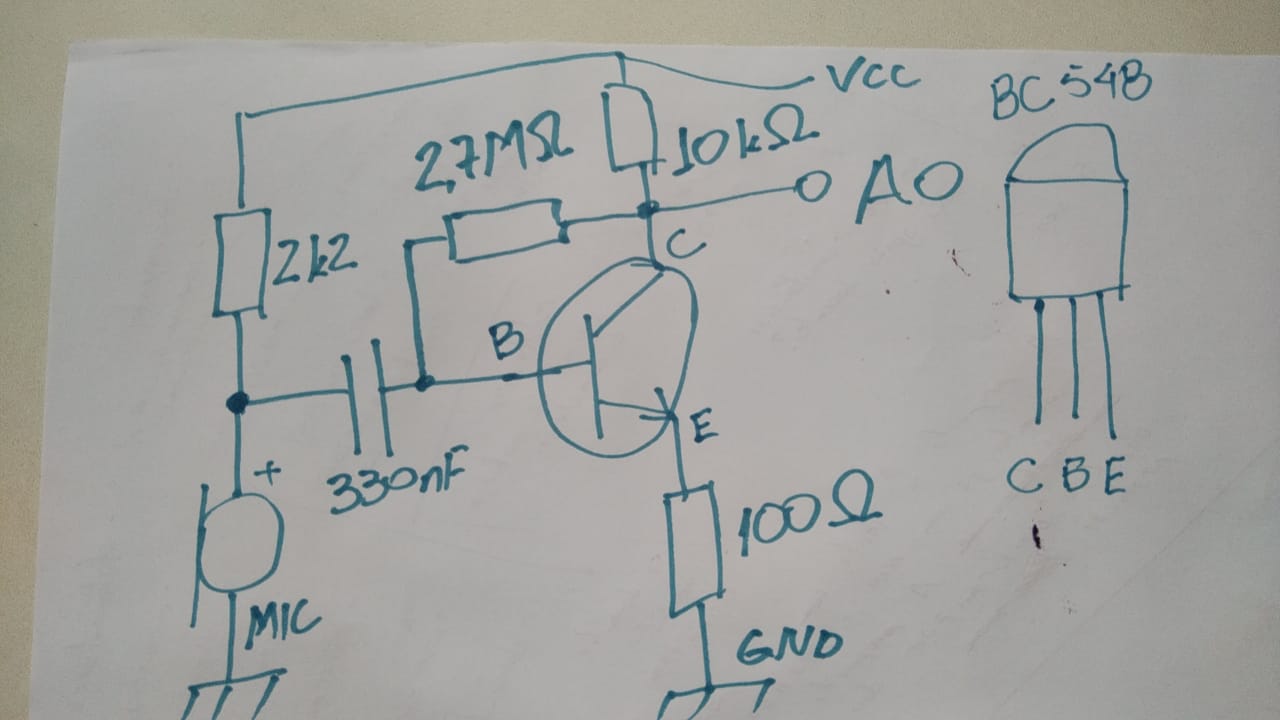 VCC
BC548
2,7MΩ
10kΩ
AO
2k2
C
B
+
330nF
E
C B E
100Ω
MIC
GND